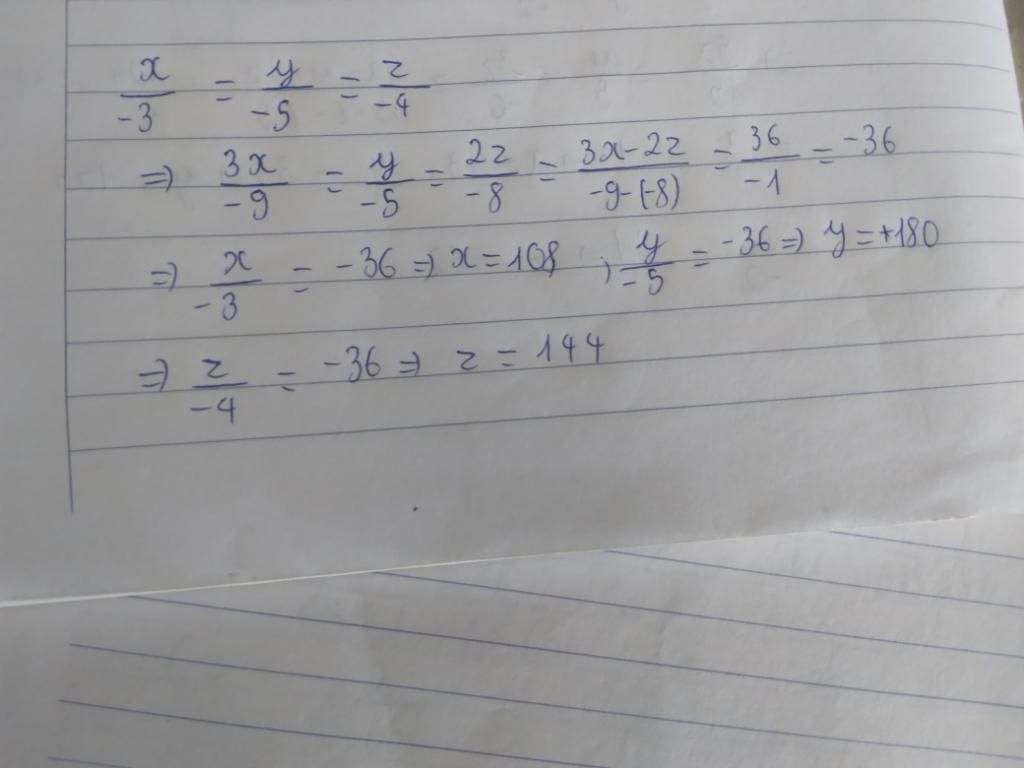 x/-3 = y/-5 = z/-4
=> 3x/-9 = y/-5 = 2z/-8 = 3x-2z/-9-(-8) = 36/-1 = -36
=> x/-3 = -36 => x = 108 ; y/-5 = -36 => y = +180
=> z/-4 = -36 => z = 144